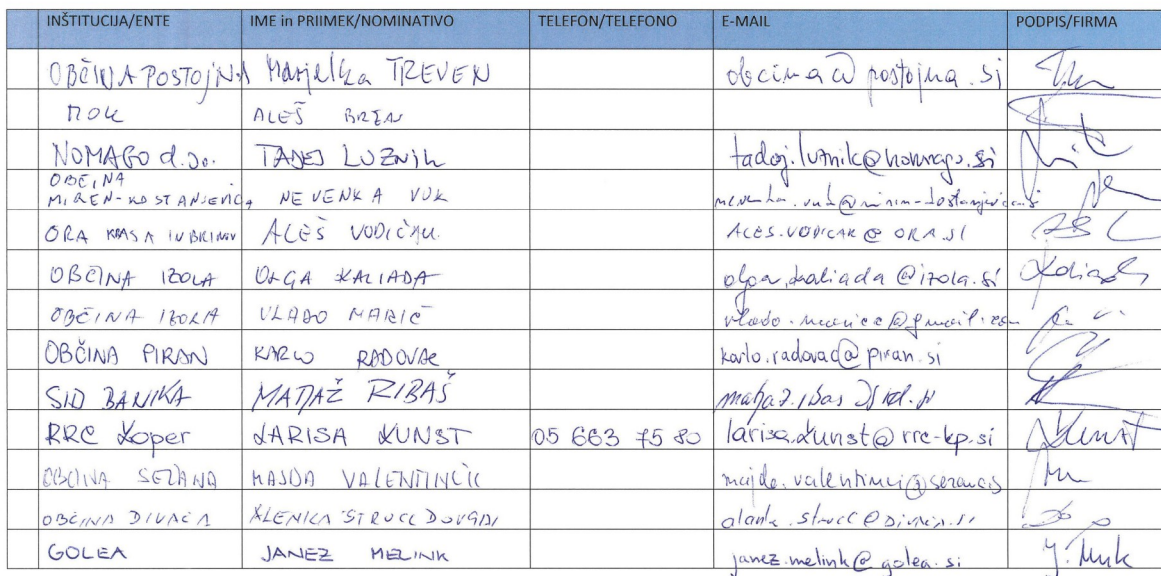 INŠTITUCIJA/ENTE IME in PRIIMEK/NOMINATIVO TELEFON/TELEFONO E-MAIL PODPIS/FIRMA
OBČINA POSTOJNA Marjelka TREVEN obcina@postojna.si
MOK ALEŠ BREN
NOMAGO d.o.o. TADEJ LUZNIK tadej.luznik@nomago.si
OBČINA
MIREN-KOSTANJEVICA NEVENKA VUK
ORA KRASA IN BRKINOV ALEŠ VODIČAR ALES.VODICAR@ORA.SI
OBČINA IZOLA OLGA KALIADA olga.kaliada@izola.si
OBČINA IZOLA VLADO MARIČ
OBČINA PIRAN KARLO RADOVAC karlo.radovac@piran.si
SID BANKA MATJAŽ RIBAŠ
RRC Koper LARISA KUNST 05 663 75 80 larisa.kunst@rrc-kp.si Kunst
OBČINA SEŽANA MAJDA VALENTINČIČ
OBČINA DIVAČA ALENKA STRUCL DOVGAN
GOLEA JANEZ MELINK janez.melink@golea.si